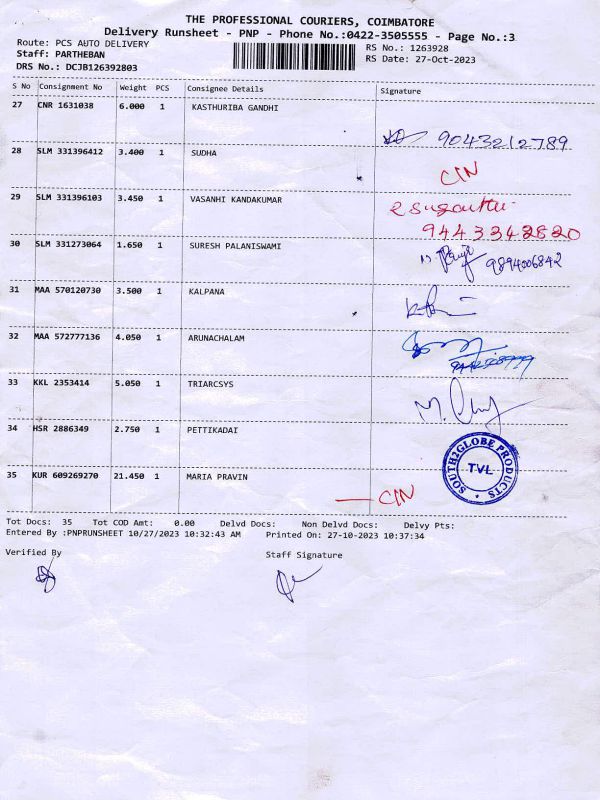 THE PROFESSIONAL COURIERS, COIMBATORE
Delivery Runsheet - PNP - Phone No.:0422-3505555 - Page No.:3
Route: PCS AUTO DELIVERY
RS No.: 1263928
Staff: PARTHEBAN
RS Date: 27-Oct-2023
DRS No.: DCJB126392803
S No Consignment No Weight PCS Consignee Details Signature
27 CNR 1631038 6.000 1 KASTHURIBA GANDHI
9043212789
28 SLM 331396412 3.400 1 SUDHA
CIN
29 SLM 331396103 3.450 1 VASANHI KANDAKUMAR
9443342820
30 SLM 331273064 1.650 1 SURESH PALANISWAMI
9894006842
31 MAA 570120730 3.500 1 KALPANA
32 MAA 572777136 4.050 1 ARUNACHALAM
33 KKL 2353414 5.050 1 TRIARCSYS
34 HSR 2886349 2.750 1 PETTIKADAI
SOUTH2GLOBE PRODUCTS
TVL
35 KUR 609269270 21.450 1 MARIA PRAVIN
CIN
Tot Docs: 35 Tot COD Amt: 0.00 Delvd Docs: Non Delvd Docs: Delvy Pts:
Entered By :PNPRUNSHEET 10/27/2023 10:32:43 AM Printed On: 27-10-2023 10:37:34
Verified By Staff Signature